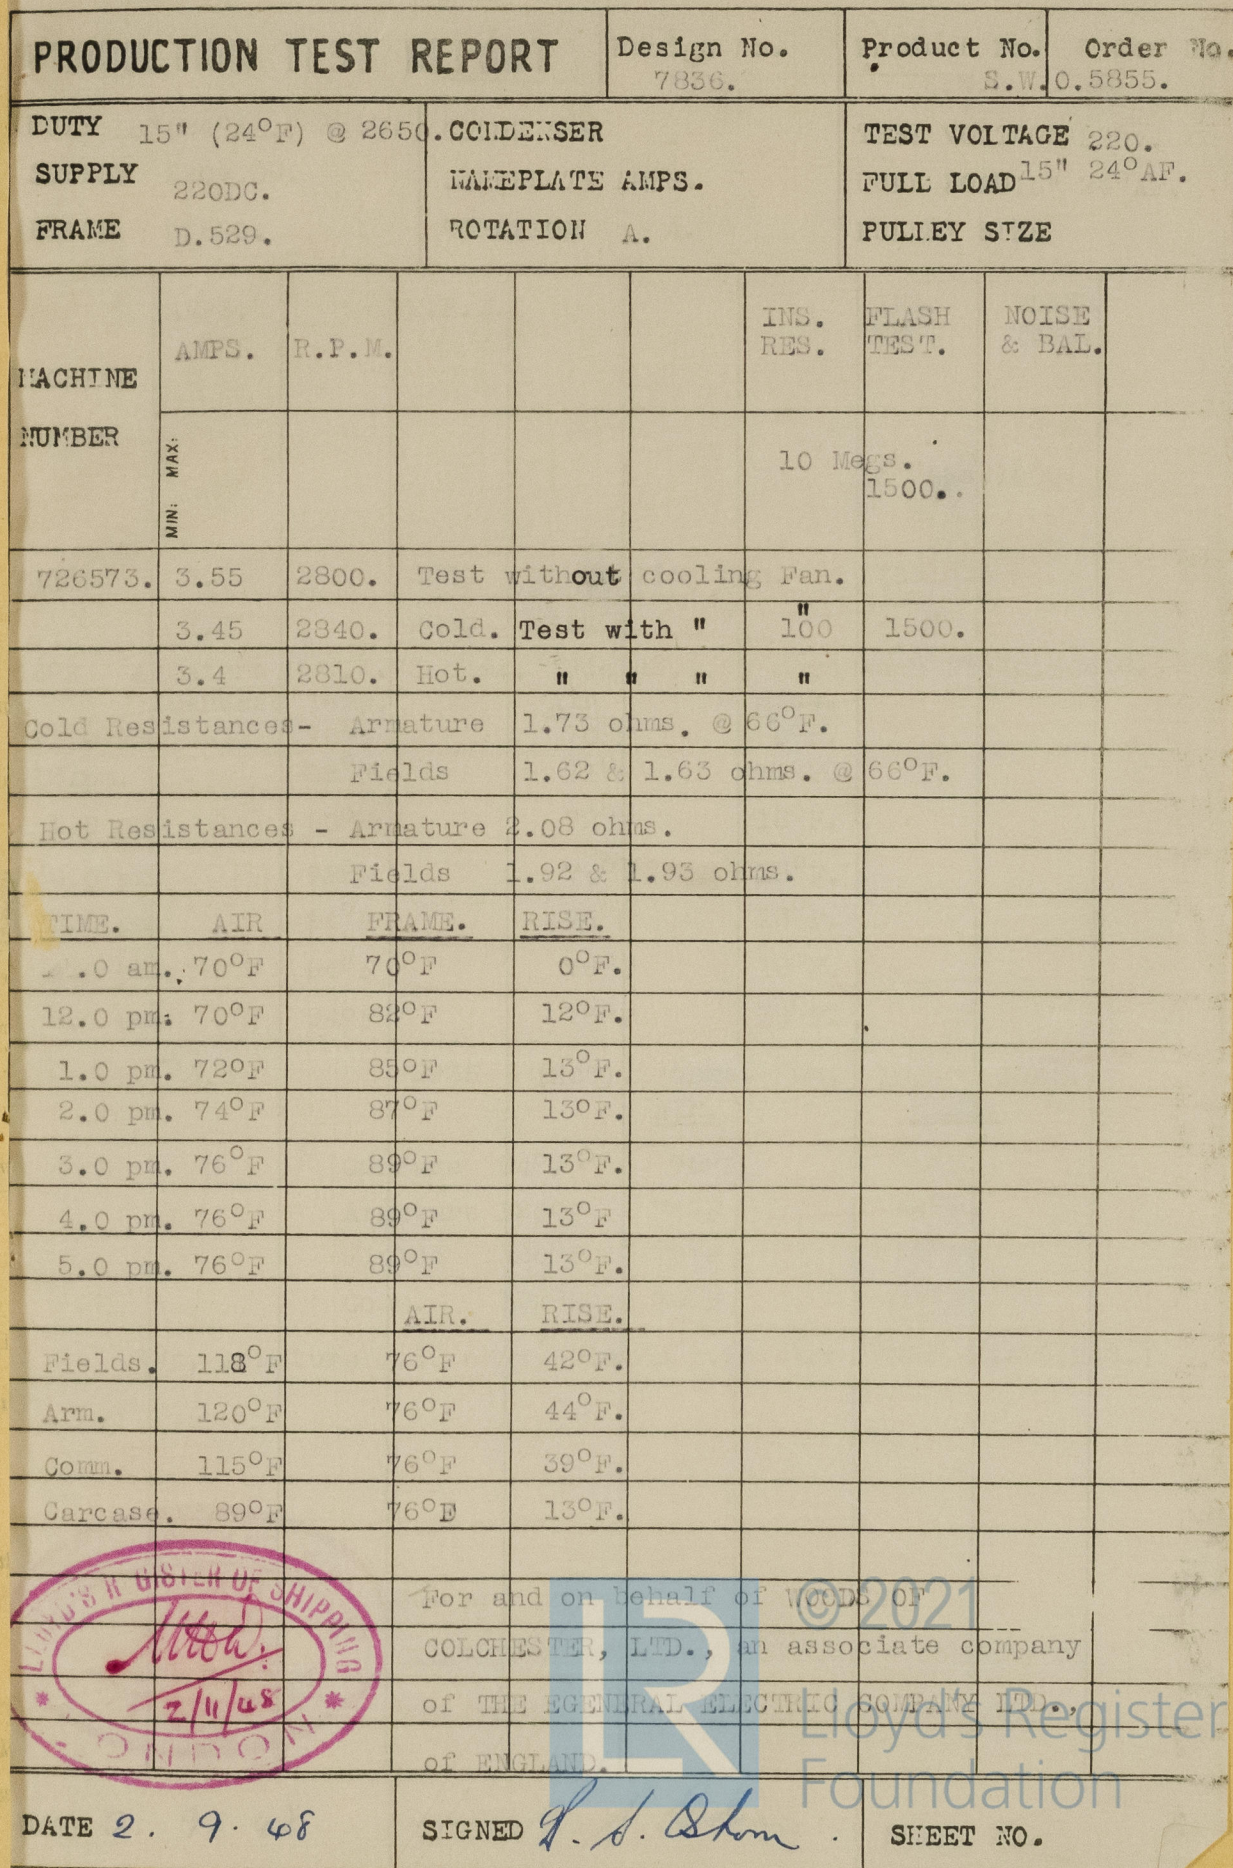 PRODUCTION TEST REPORT
Design No.
7836.
Product No.
Order No.
S.W.O.5855.
DUTY 15" (24°F) @ 2650.
SUPPLY 220DC.
FRAME D.529.
CONDENSER
NAMEPLATE AMPS.
ROTATION A.
TEST VOLTAGE 220.
FULL LOAD 15" 24°AF.
PULLEY SIZE
MACHINE
NUMBER
AMPS.
R.P.M.
INS.
RES.
FLASH
TEST.
NOISE
& BAL.
MIN: MAX:
10 Megs.
1500..
726573. 3.55 2800. Test without cooling Fan.
3.45 2840. Cold. Test with " " 100 1500.
3.4 2810. Hot. " " " "
Cold Resistances- Armature 1.73 ohms. @ 66°F.
Fields 1.62 & 1.63 ohms. @ 66°F.
Hot Resistances - Armature 2.08 ohms.
Fields 1.92 & 1.93 ohms.
TIME. AIR FRAME. RISE.
.0 am. 70°F 70°F 0°F.
12.0 pm. 70°F 82°F 12°F.
1.0 pm. 72°F 85°F 13°F.
2.0 pm. 74°F 87°F 13°F.
3.0 pm. 76°F 89°F 13°F.
4.0 pm. 76°F 89°F 13°F
5.0 pm. 76°F 89°F 13°F.
AIR. RISE.
Fields. 118°F 76°F 42°F.
Arm. 120°F 76°F 44°F.
Comm. 115°F 76°F 39°F.
Carcase. 89°F 76°E 13°F.
LLOYD'S REGISTER OF SHIPPING
2/11/48
LONDON
For and on behalf of WOODS OF
COLCHESTER, LTD., an associate company
of THE EGENERAL ELECTRIC COMPANY LTD.,
of ENGLAND.
© 2021
LR
Lloyd's Register
Foundation
DATE 2. 9. 48
SIGNED
SHEET NO.